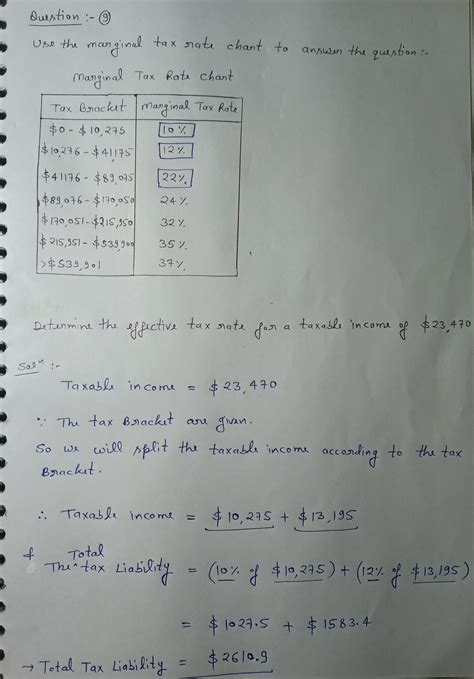 Question :- 9
Use the marginal tax rate chart to answer the question :-
Marginal Tax Rate Chart
Tax Bracket Marginal Tax Rate
$0 - $10,275 10%
$10,276 - $41175 12%
$41176 - $89,075 22%
$89,076 - $170,050 24%
$170,051 - $215,950 32%
$215,951 - $539,900 35%
>$539,901 37%
Determine the effective tax rate for a taxable income of $23,470
Solⁿ :-
Taxable income = $23,470
∵ The tax Bracket are given.
So we will split the taxable income according to the tax
Bracket.
∴ Taxable income = $10,275 + $13,195
& The ^Total tax Liability = (10% of $10,275) + (12% of $13,195)
= $1027.5 + $1583.4
→ Total Tax Liability = $2610.9